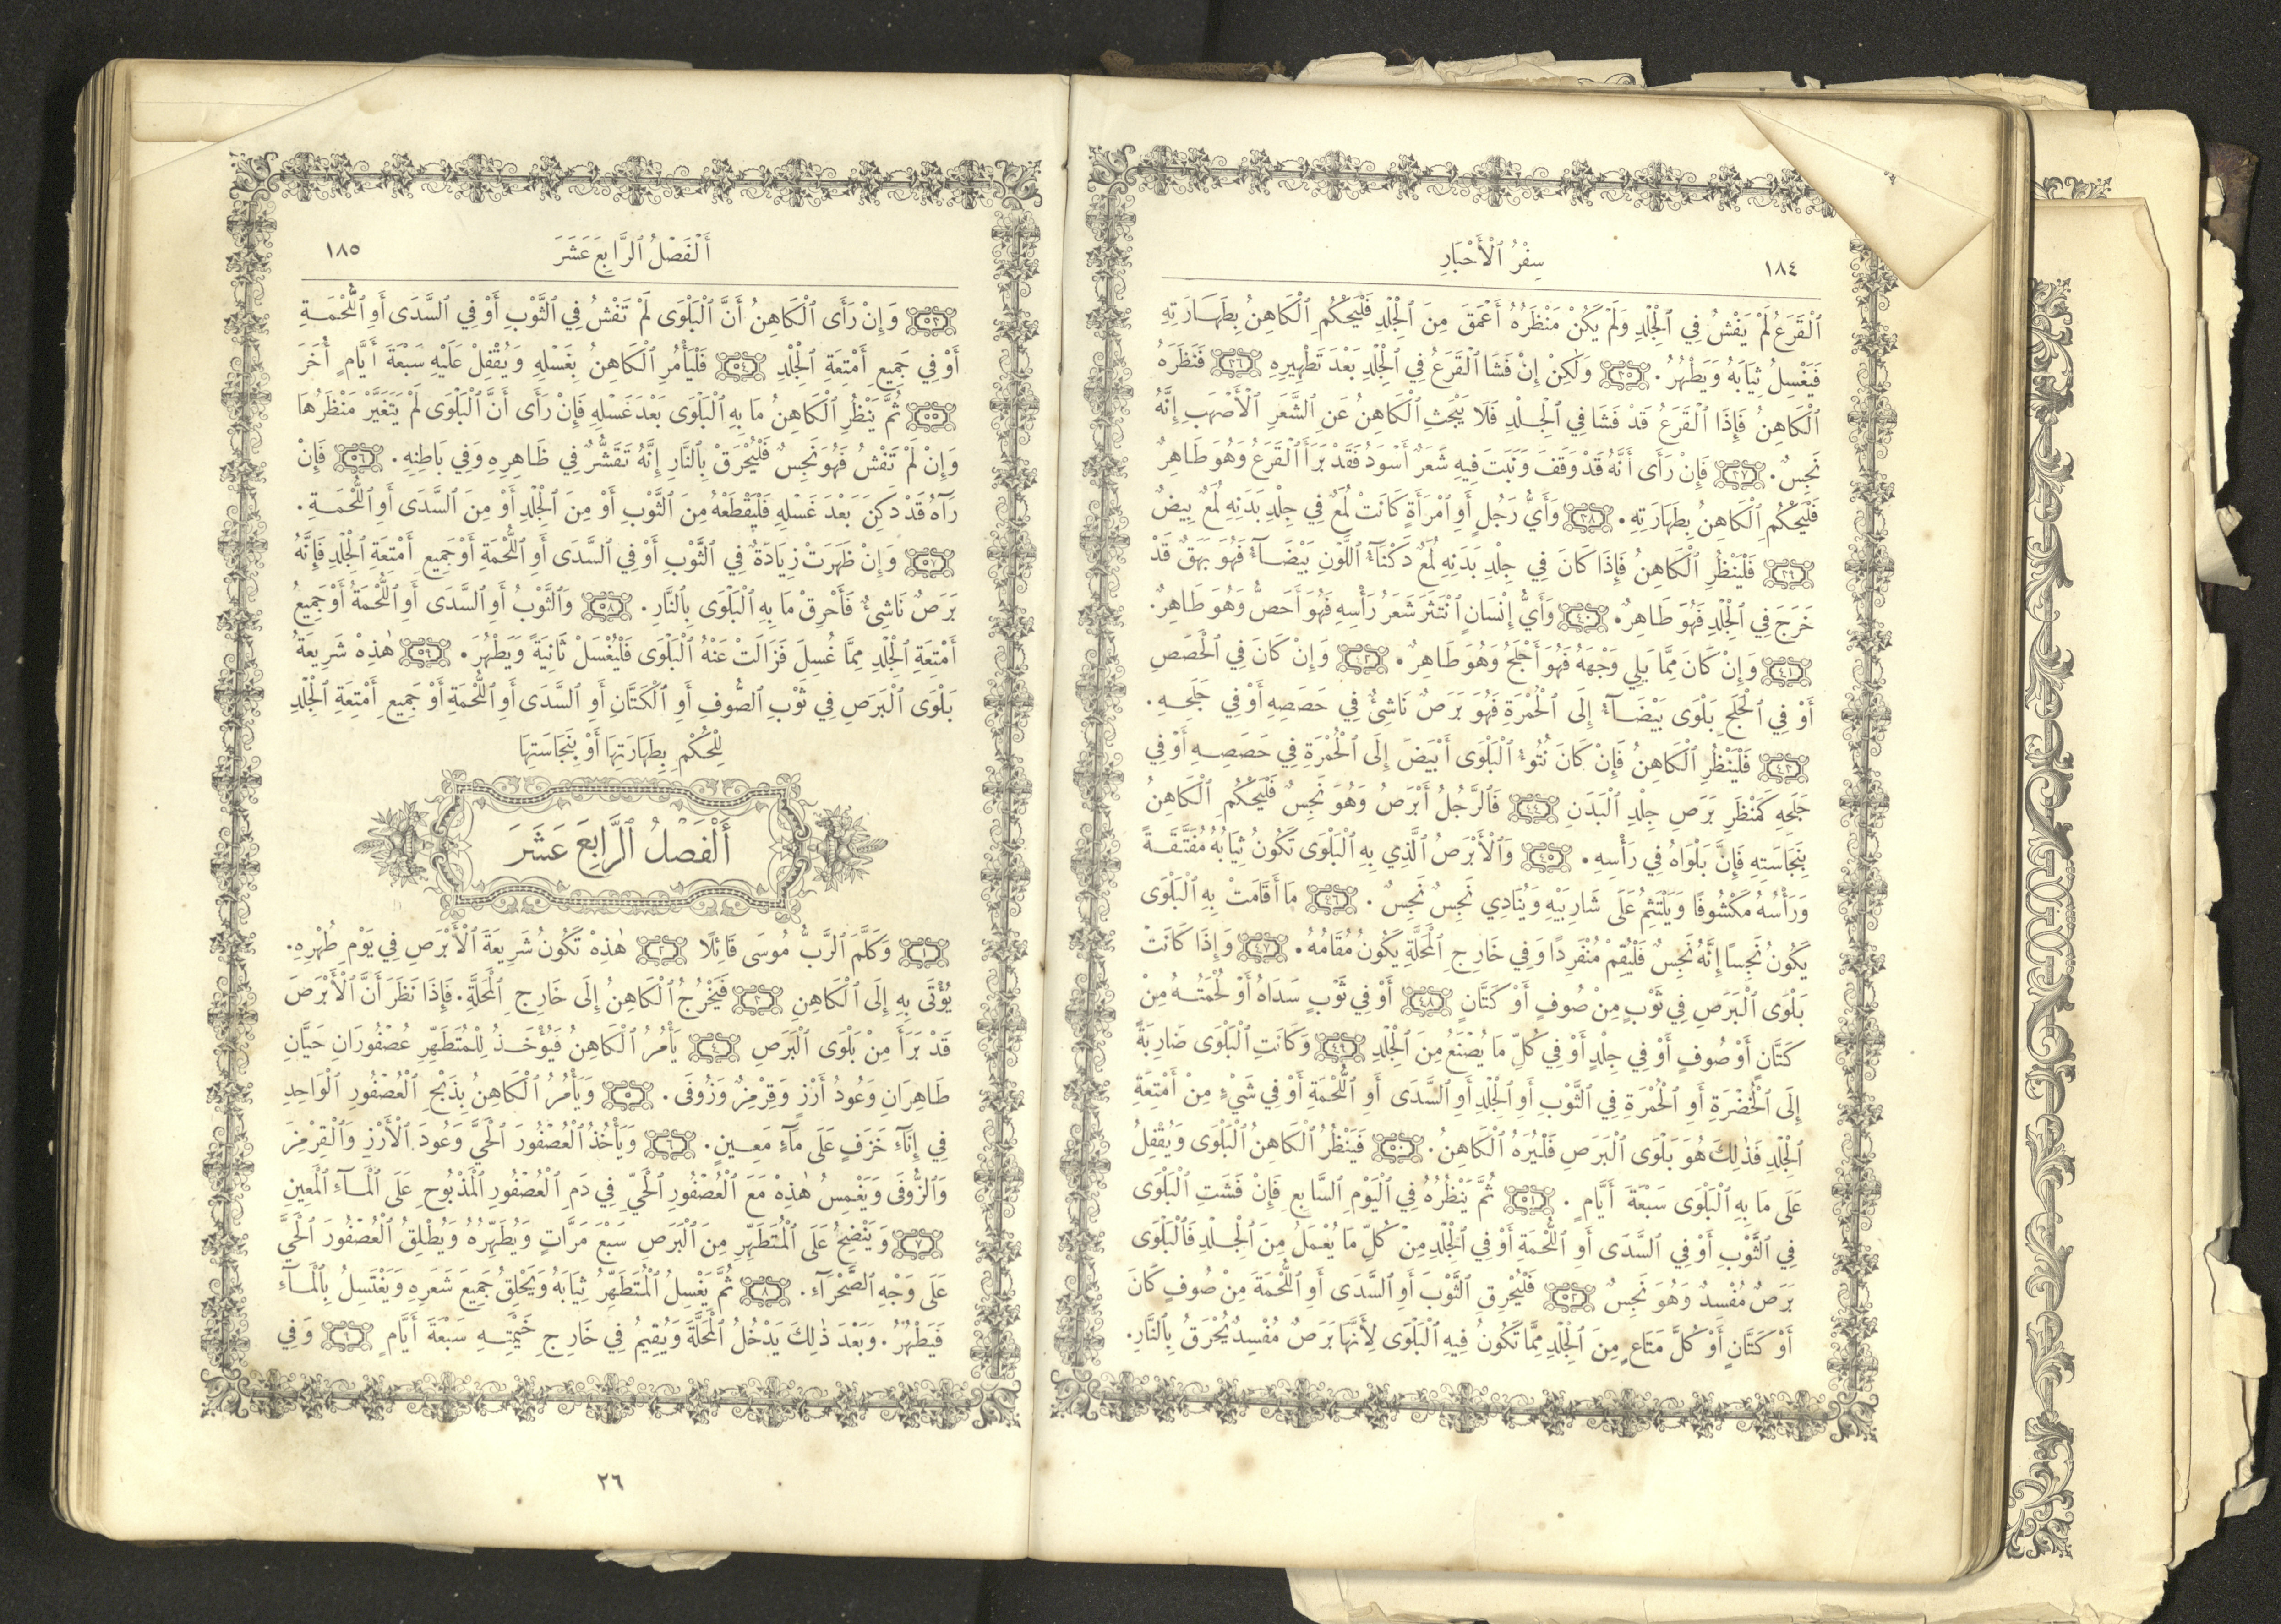 ١٨٤
سِفْرُ ٱلْأَحْبَارِ
ٱلْقَرَعُ لَمْ يَفْشُ فِي ٱلْجِلْدِ وَلَمْ يَكُنْ مَنْظَرُهُ أَعْمَقَ مِنَ ٱلْجِلْدِ فَلْيَحْكُمِ ٱلْكَاهِنُ بِطَهَارَتِهِ
فَيَغْسِلُ ثِيَابَهُ وَيَطْهُرُ. ٣٥ وَلٰكِنْ إِنْ فَشَا ٱلْقَرَعُ فِي ٱلْجِلْدِ بَعْدَ تَطْهِيرِهِ ٣٦ فَنَظَرَهُ
ٱلْكَاهِنُ فَإِذَا ٱلْقَرَعُ قَدْ فَشَا فِي ٱلْجِلْدِ فَلَا يَبْحَثِ ٱلْكَاهِنُ عَنِ ٱلشَّعَرِ ٱلْأَصْهَبِ إِنَّهُ
نَجِسٌ. ٣٧ فَإِنْ رَأَى أَنَّهُ قَدْ وَقَفَ وَنَبَتَ فِيهِ شَعَرٌ أَسْوَدُ فَقَدْ بَرَأَ ٱلْقَرَعُ وَهُوَ طَاهِرٌ
فَلْيَحْكُمِ ٱلْكَاهِنُ بِطَهَارَتِهِ. ٣٨ وَأَيُّ رَجُلٍ أَوِ ٱمْرَأَةٍ كَانَتْ لُمَعٌ فِي جِلْدِ بَدَنِهِ لُمَعٌ بِيضٌ
٣٩ فَلْيَنْظُرِ ٱلْكَاهِنُ فَإِذَا كَانَ فِي جِلْدِ بَدَنِهِ لُمَعٌ دَكْنَآءُ ٱللَّوْنِ بَيْضَآءُ فَهُوَ بَهَقٌ قَدْ
خَرَجَ فِي ٱلْجِلْدِ فَهُوَ طَاهِرٌ. ٤٠ وَأَيُّ إِنْسَانٍ ٱنْتَثَرَ شَعَرُ رَأْسِهِ فَهُوَ أَحَصُّ وَهُوَ طَاهِرٌ.
٤١ وَإِنْ كَانَ مِمَّا يَلِي وَجْهَهُ فَهُوَ أَجْلَحُ وَهُوَ طَاهِرٌ. ٤٢ وَإِنْ كَانَ فِي ٱلْحَصَصِ
أَوْ فِي ٱلْجَلَحِ بَلْوَى بَيْضَآءُ إِلَى ٱلْحُمْرَةِ فَهُوَ بَرَصٌ نَاشِئٌ فِي حَصَصِهِ أَوْ فِي جَلَحِهِ.
٤٣ فَلْيَنْظُرِ ٱلْكَاهِنُ فَإِنْ كَانَ نُتُوءُ ٱلْبَلْوَى أَبْيَضَ إِلَى ٱلْحُمْرَةِ فِي حَصَصِهِ أَوْ فِي
جَلَحِهِ كَمَنْظَرِ بَرَصِ جِلْدِ ٱلْبَدَنِ ٤٤ فَٱلرَّجُلُ أَبْرَصُ وَهُوَ نَجِسٌ فَلْيَحْكُمِ ٱلْكَاهِنُ
بِنَجَاسَتِهِ فَإِنَّ بَلْوَاهُ فِي رَأْسِهِ. ٤٥ وَٱلْأَبْرَصُ ٱلَّذِي بِهِ ٱلْبَلْوَى تَكُونُ ثِيَابُهُ مُفَتَّقَةً
وَرَأْسُهُ مَكْشُوفًا وَيَلْتَثِمُ عَلَى شَارِبَيْهِ وَيُنَادِي نَجِسٌ نَجِسٌ. ٤٦ مَا أَقَامَتْ بِهِ ٱلْبَلْوَى
يَكُونُ نَجِسًا إِنَّهُ نَجِسٌ فَلْيُقِمْ مُنْفَرِدًا وَفِي خَارِجِ ٱلْمَحَلَّةِ يَكُونُ مُقَامُهُ. ٤٧ وَإِذَا كَانَتْ
بَلْوَى ٱلْبَرَصِ فِي ثَوْبٍ مِنْ صُوفٍ أَوْ كَتَّانٍ ٤٨ أَوْ فِي ثَوْبٍ سَدَاهُ أَوْ لُحْمَتُهُ مِنْ
كَتَّانٍ أَوْ صُوفٍ أَوْ فِي جِلْدٍ أَوْ فِي كُلِّ مَا يُصْنَعُ مِنَ ٱلْجِلْدِ ٤٩ وَكَانَتِ ٱلْبَلْوَى ضَارِبَةً
إِلَى ٱلْخُضْرَةِ أَوِ ٱلْحُمْرَةِ فِي ٱلثَّوْبِ أَوِ ٱلْجِلْدِ أَوِ ٱلسَّدَى أَوِ ٱللُّحْمَةِ أَوْ فِي شَيْءٍ مِنْ أَمْتِعَةِ
ٱلْجِلْدِ فَذٰلِكَ هُوَ بَلْوَى ٱلْبَرَصِ فَلْيُرَهُ ٱلْكَاهِنُ. ٥٠ فَيَنْظُرُ ٱلْكَاهِنُ ٱلْبَلْوَى وَيُقْفِلُ
عَلَى مَا بِهِ ٱلْبَلْوَى سَبْعَةَ أَيَّامٍ. ٥١ ثُمَّ يَنْظُرُهُ فِي ٱلْيَوْمِ ٱلسَّابِعِ فَإِنْ فَشَتِ ٱلْبَلْوَى
فِي ٱلثَّوْبِ أَوْ فِي ٱلسَّدَى أَوِ ٱللُّحْمَةِ أَوْ فِي ٱلْجِلْدِ مِنْ كُلِّ مَا يُعْمَلُ مِنَ ٱلْجِلْدِ فَٱلْبَلْوَى
بَرَصٌ مُفْسِدٌ وَهُوَ نَجِسٌ ٥٢ فَلْيُحْرِقِ ٱلثَّوْبَ أَوِ ٱلسَّدَى أَوِ ٱللُّحْمَةَ مِنْ صُوفٍ كَانَ
أَوْ كَتَّانٍ أَوْ كُلَّ مَتَاعٍ مِنَ ٱلْجِلْدِ مِمَّا تَكُونُ فِيهِ ٱلْبَلْوَى لِأَنَّهَا بَرَصٌ مُفْسِدٌ يُحْرَقُ بِٱلنَّارِ.
أَلْفَصْلُ ٱلرَّابِعَ عَشَرَ
١٨٥
٥٣ وَإِنْ رَأَى ٱلْكَاهِنُ أَنَّ ٱلْبَلْوَى لَمْ تَفْشُ فِي ٱلثَّوْبِ أَوْ فِي ٱلسَّدَى أَوِ ٱللُّحْمَةِ
أَوْ فِي جَمِيعِ أَمْتِعَةِ ٱلْجِلْدِ ٥٤ فَلْيَأْمُرِ ٱلْكَاهِنُ بِغَسْلِهِ وَيُقْفِلْ عَلَيْهِ سَبْعَةَ أَيَّامٍ أُخَرَ
٥٥ ثُمَّ يَنْظُرِ ٱلْكَاهِنُ مَا بِهِ ٱلْبَلْوَى بَعْدَ غَسْلِهِ فَإِنْ رَأَى أَنَّ ٱلْبَلْوَى لَمْ يَتَغَيَّرْ مَنْظَرُهَا
وَإِنْ لَمْ تَفْشُ فَهُوَ نَجِسٌ فَلْيُحْرَقْ بِٱلنَّارِ إِنَّهُ تَقَشُّرٌ فِي ظَاهِرِهِ وَفِي بَاطِنِهِ. ٥٦ فَإِنْ
رَآهُ قَدْ دَكِنَ بَعْدَ غَسْلِهِ فَلْيَقْطَعْهُ مِنَ ٱلثَّوْبِ أَوْ مِنَ ٱلْجِلْدِ أَوْ مِنَ ٱلسَّدَى أَوِ ٱللُّحْمَةِ.
٥٧ وَإِنْ ظَهَرَتْ زِيَادَةٌ فِي ٱلثَّوْبِ أَوْ فِي ٱلسَّدَى أَوِ ٱللُّحْمَةِ أَوْ جَمِيعِ أَمْتِعَةِ ٱلْجِلْدِ فَإِنَّهُ
بَرَصٌ نَاشِئٌ فَأَحْرِقْ مَا بِهِ ٱلْبَلْوَى بِٱلنَّارِ. ٥٨ وَٱلثَّوْبُ أَوِ ٱلسَّدَى أَوِ ٱللُّحْمَةُ أَوْ جَمِيعُ
أَمْتِعَةِ ٱلْجِلْدِ مِمَّا غُسِلَ فَزَالَتْ عَنْهُ ٱلْبَلْوَى فَلْيُغْسَلْ ثَانِيَةً وَيَطْهُرَ. ٥٩ هٰذِهْ شَرِيعَةُ
بَلْوَى ٱلْبَرَصِ فِي ثَوْبِ ٱلصُّوفِ أَوِ ٱلْكَتَّانِ أَوِ ٱلسَّدَى أَوِ ٱللُّحْمَةِ أَوْ جَمِيعِ أَمْتِعَةِ ٱلْجِلْدِ
لِلْحُكْمِ بِطَهَارَتِهَا أَوْ بِنَجَاسَتِهَا
أَلْفَصْلُ ٱلرَّابِعَ عَشَرَ
١ وَكَلَّمَ ٱلرَّبُّ مُوسَى قَائِلًا ٢ هٰذِهْ تَكُونُ شَرِيعَةَ ٱلْأَبْرَصِ فِي يَوْمِ طُهْرِهِ.
يُؤْتَى بِهِ إِلَى ٱلْكَاهِنِ ٣ فَيَخْرُجُ ٱلْكَاهِنُ إِلَى خَارِجِ ٱلْمَحَلَّةِ. فَإِذَا نَظَرَ أَنَّ ٱلْأَبْرَصَ
قَدْ بَرَأَ مِنْ بَلْوَى ٱلْبَرَصِ ٤ يَأْمُرُ ٱلْكَاهِنُ فَيُؤْخَذُ لِلْمُتَطَهِّرِ عُصْفُورَانِ حَيَّانِ
طَاهِرَانِ وَعُودُ أَرْزٍ وَقِرْمِزٌ وَزُوفَى. ٥ وَيَأْمُرُ ٱلْكَاهِنُ بِذَبْحِ ٱلْعُصْفُورِ ٱلْوَاحِدِ
فِي إِنَآءِ خَزَفٍ عَلَى مَآءٍ مَعِينٍ. ٦ وَيَأْخُذُ ٱلْعُصْفُورَ ٱلْحَيَّ وَعُودَ ٱلْأَرْزِ وَٱلْقِرْمِزَ
وَٱلزُّوفَى وَيَغْمِسُ هٰذِهْ مَعَ ٱلْعُصْفُورِ ٱلْحَيِّ فِي دَمِ ٱلْعُصْفُورِ ٱلْمَذْبُوحِ عَلَى ٱلْمَآءِ ٱلْمَعِينِ
٧ وَيَنْضِحُ عَلَى ٱلْمُتَطَهِّرِ مِنَ ٱلْبَرَصِ سَبْعَ مَرَّاتٍ وَيُطَهِّرُهُ وَيُطْلِقُ ٱلْعُصْفُورَ ٱلْحَيَّ
عَلَى وَجْهِ ٱلصَّحْرَآءِ. ٨ ثُمَّ يَغْسِلُ ٱلْمُتَطَهِّرُ ثِيَابَهُ وَيَحْلِقُ جَمِيعَ شَعَرِهِ وَيَغْتَسِلُ بِٱلْمَآءِ
فَيَطْهُرُ. وَبَعْدَ ذٰلِكَ يَدْخُلُ ٱلْمَحَلَّةَ وَيُقِيمُ فِي خَارِجِ خَيْمَتِهِ سَبْعَةَ أَيَّامٍ ٩ وَفِي
٢٦